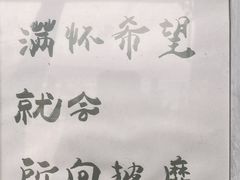 满怀希望
就会
所向披靡